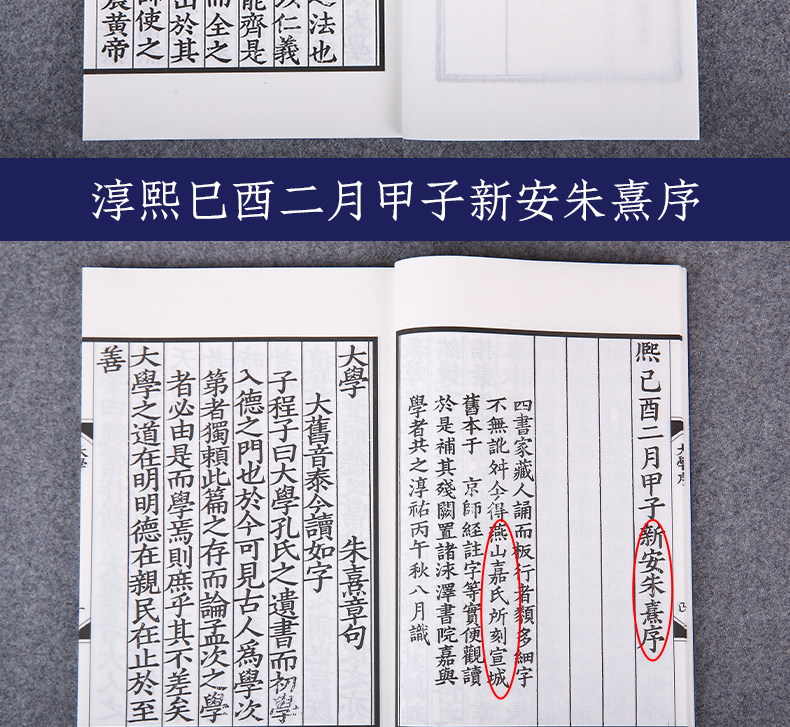 之法也
以仁義
能齊是
而全之
出於其
師使之
農黄帝
淳熙巳酉二月甲子新安朱熹序
熙己酉二月甲子新安朱熹序
四書家藏人誦而板行者類多細字
不無訛舛今得燕山嘉氏所刻宣城
舊本于 京師經註字等實便觀讀
於是補其殘闕置諸泳澤書院嘉與
學者共之淳祐丙午秋八月識
大學序
四
大學 朱熹章句
大舊音泰今讀如字
子程子曰大學孔氏之遺書而初學
入德之門也於今可見古人為學次
第者獨頼此篇之存而論孟次之學
者必由是而學焉則庶乎其不差矣
大學之道在明明德在親民在止於至
善
大學
一